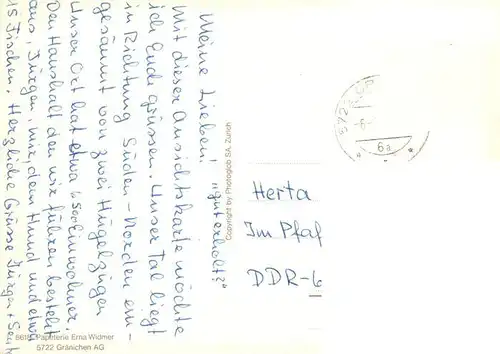 Meine Lieben!
"gut erhalten"
Mit dieser Ansichtskarte möchte
ich Euch grüssen. Unser Tal liegt
in Richtung Süden-Norden ein
gesäumt von zwei Hügelzügen
Unser Ort hat etwa Einwohner.
Den Haushalt den wir führen besteht
aus, Jürgen, mir, dem Hund und etwa
15 Fischen. Herzliche Grüsse Jürgen +
8618 Papeterie Erna Widmer
5722 Gränichen AG
Copyright by Photoglob SA. Zürich
5722
-6-
6a
Herta
Im Pfaf
DDR-6